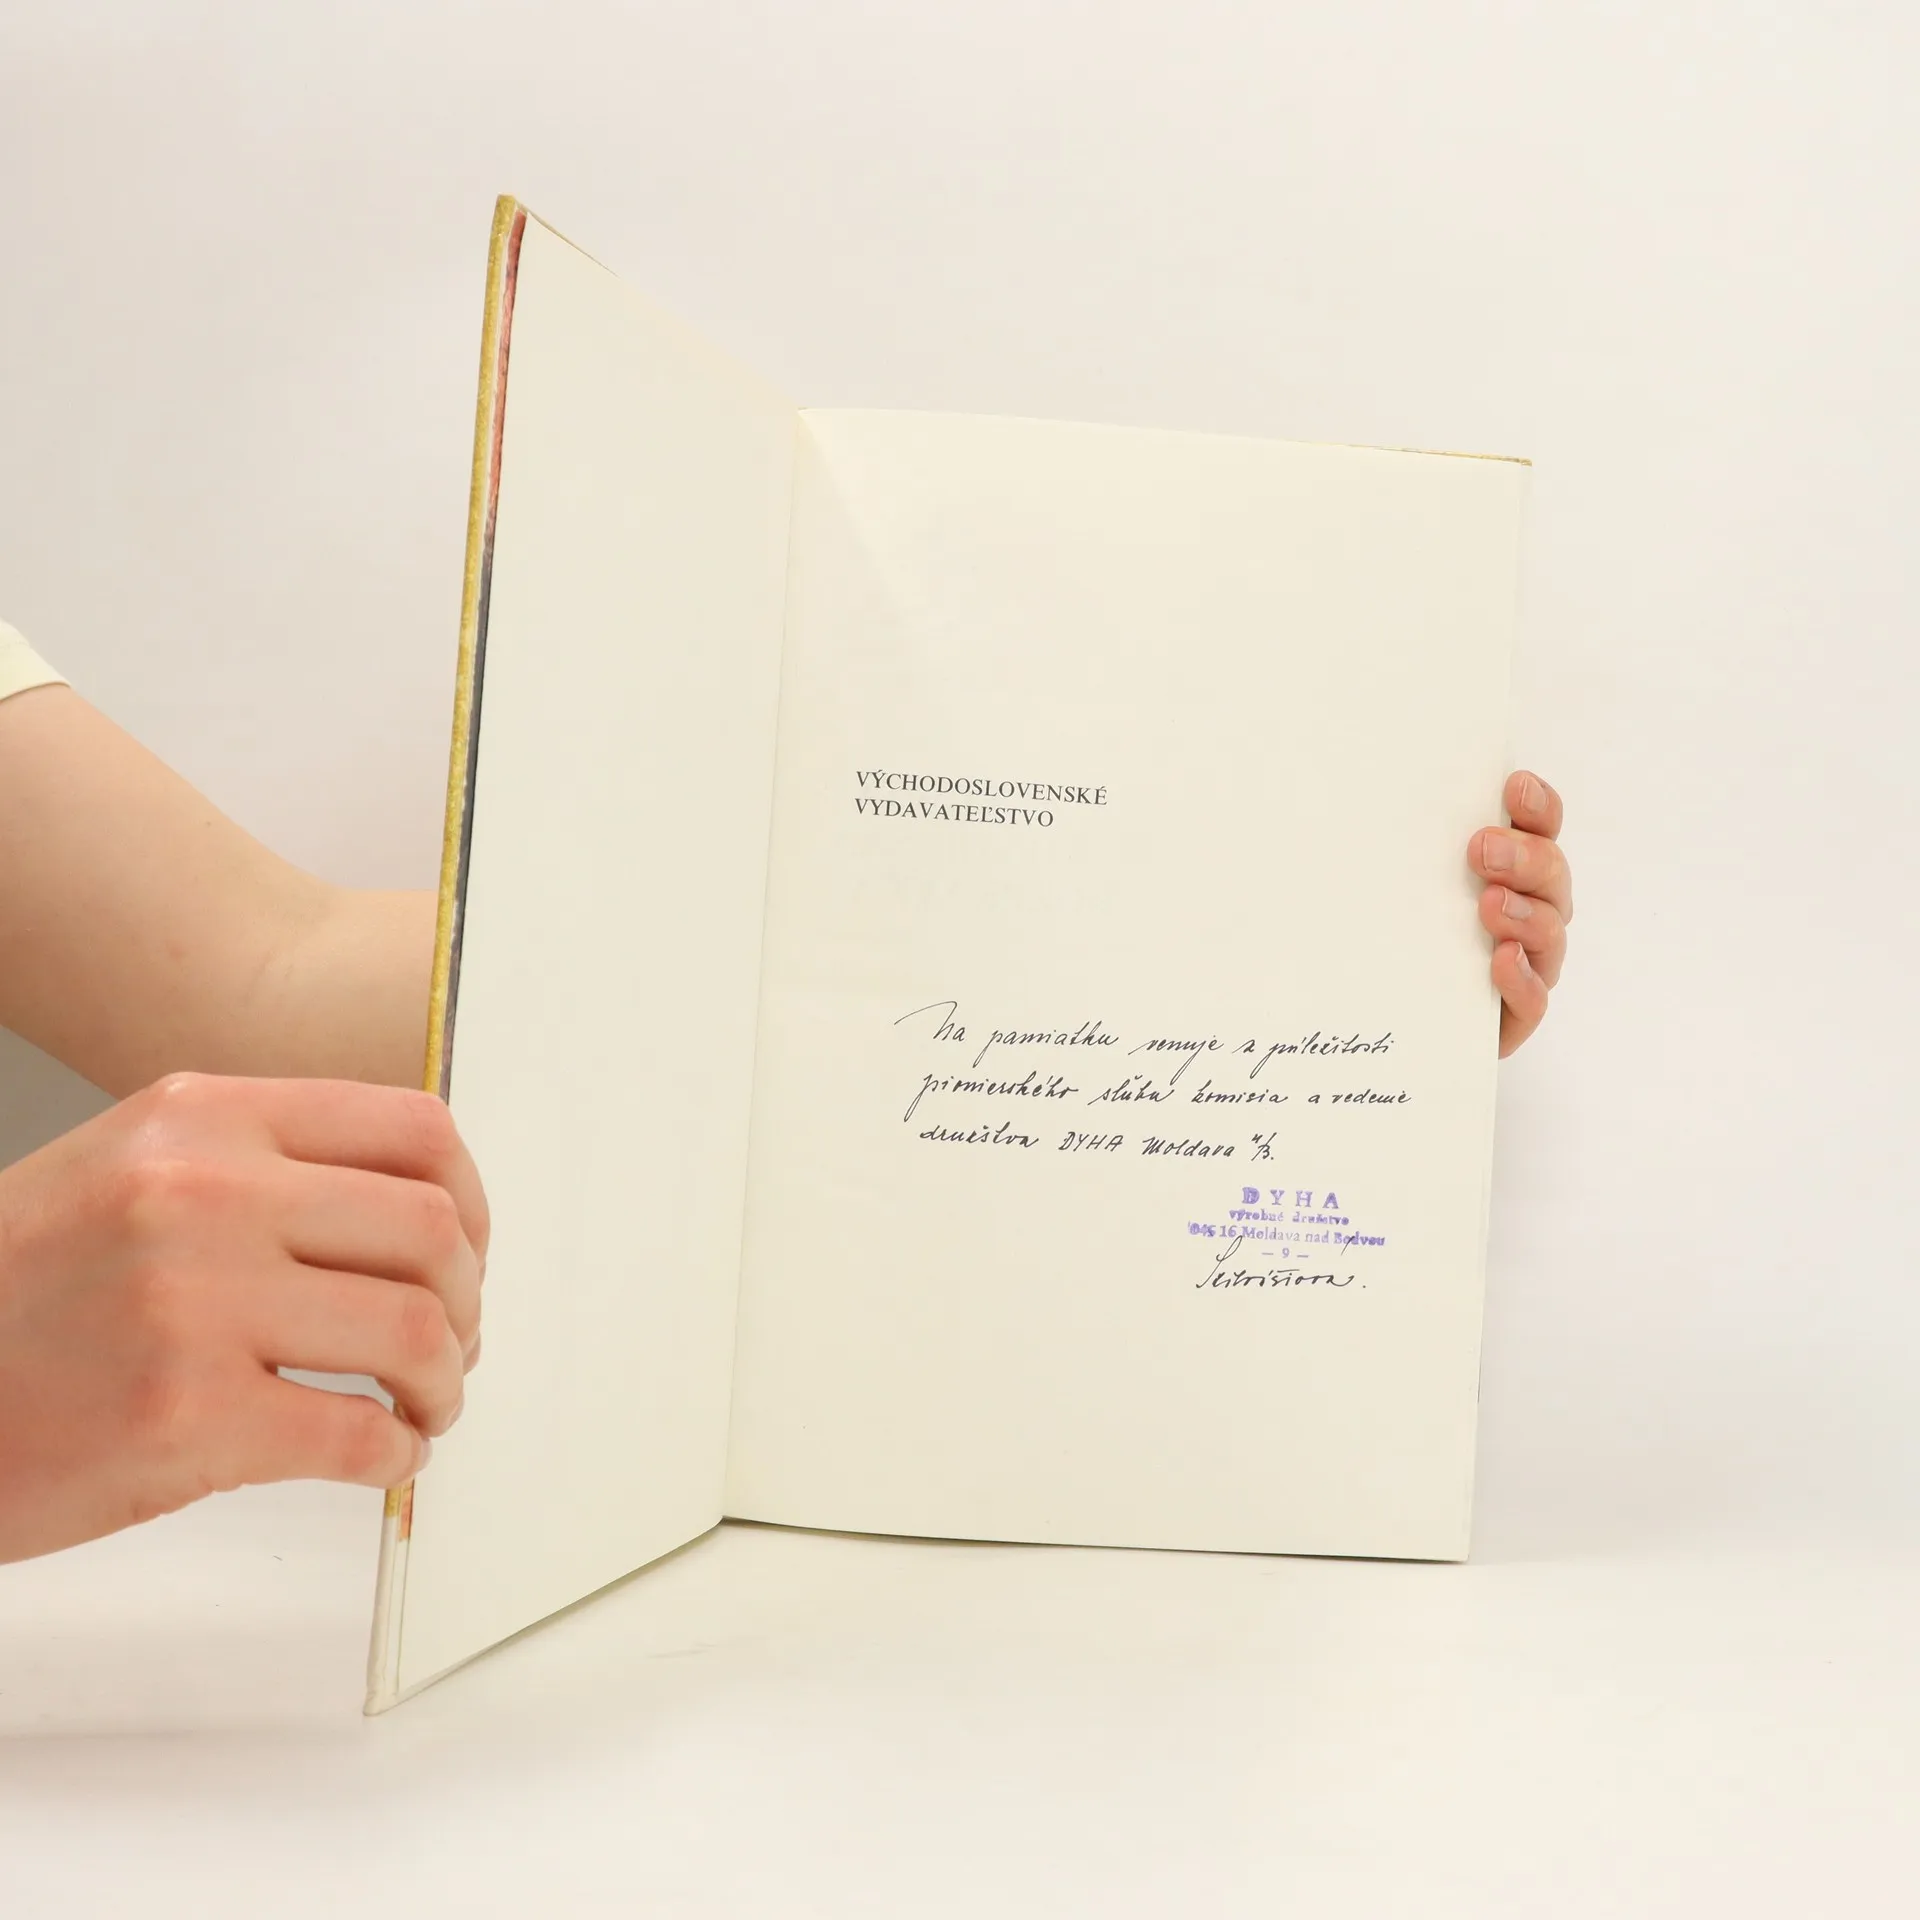 VÝCHODOSLOVENSKÉ
VYDAVATEĽSTVO
Na pamiatku venuje z príležitosti
pionierského sľubu komisia a vedenie
družstva DYHA Moldava n/B.
DYHA
výrobné družstvo
045 16 Moldava nad Bodvou
— 9 —